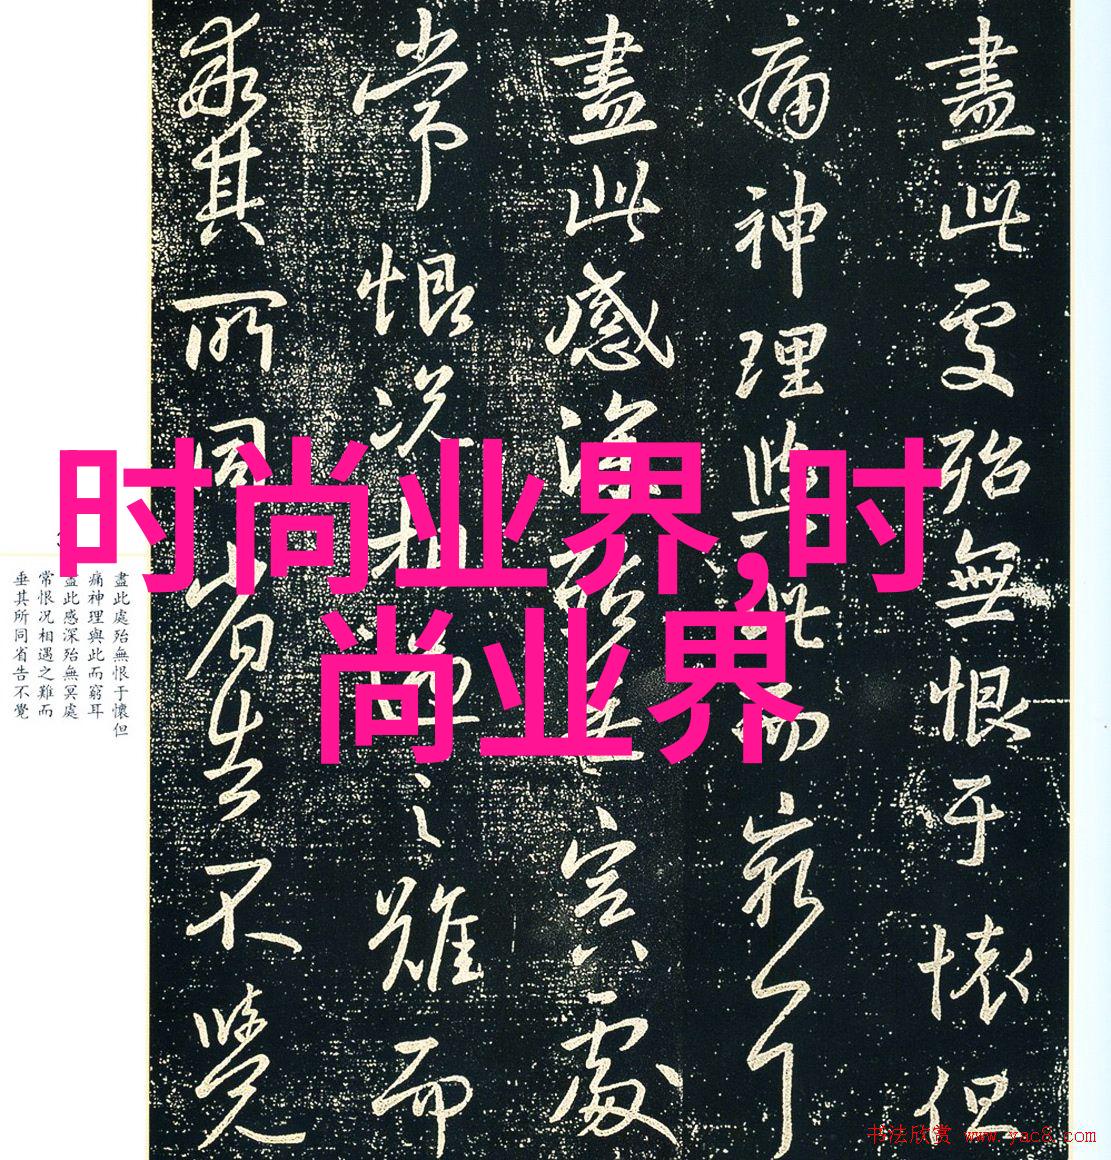 盡此處殆無恨于懷但
痛神理與此而窮耳
盡此感深殆無冥處
常恨況相遇之難而
垂其所同省告不覺
时尚业界,时
尚业界
盡此處殆無恨于懷但
痛神理與此而窮耳
盡此感深殆無冥處
常恨况相遇之難而
垂其所同省告不覺
书法欣赏 www.yac8.com